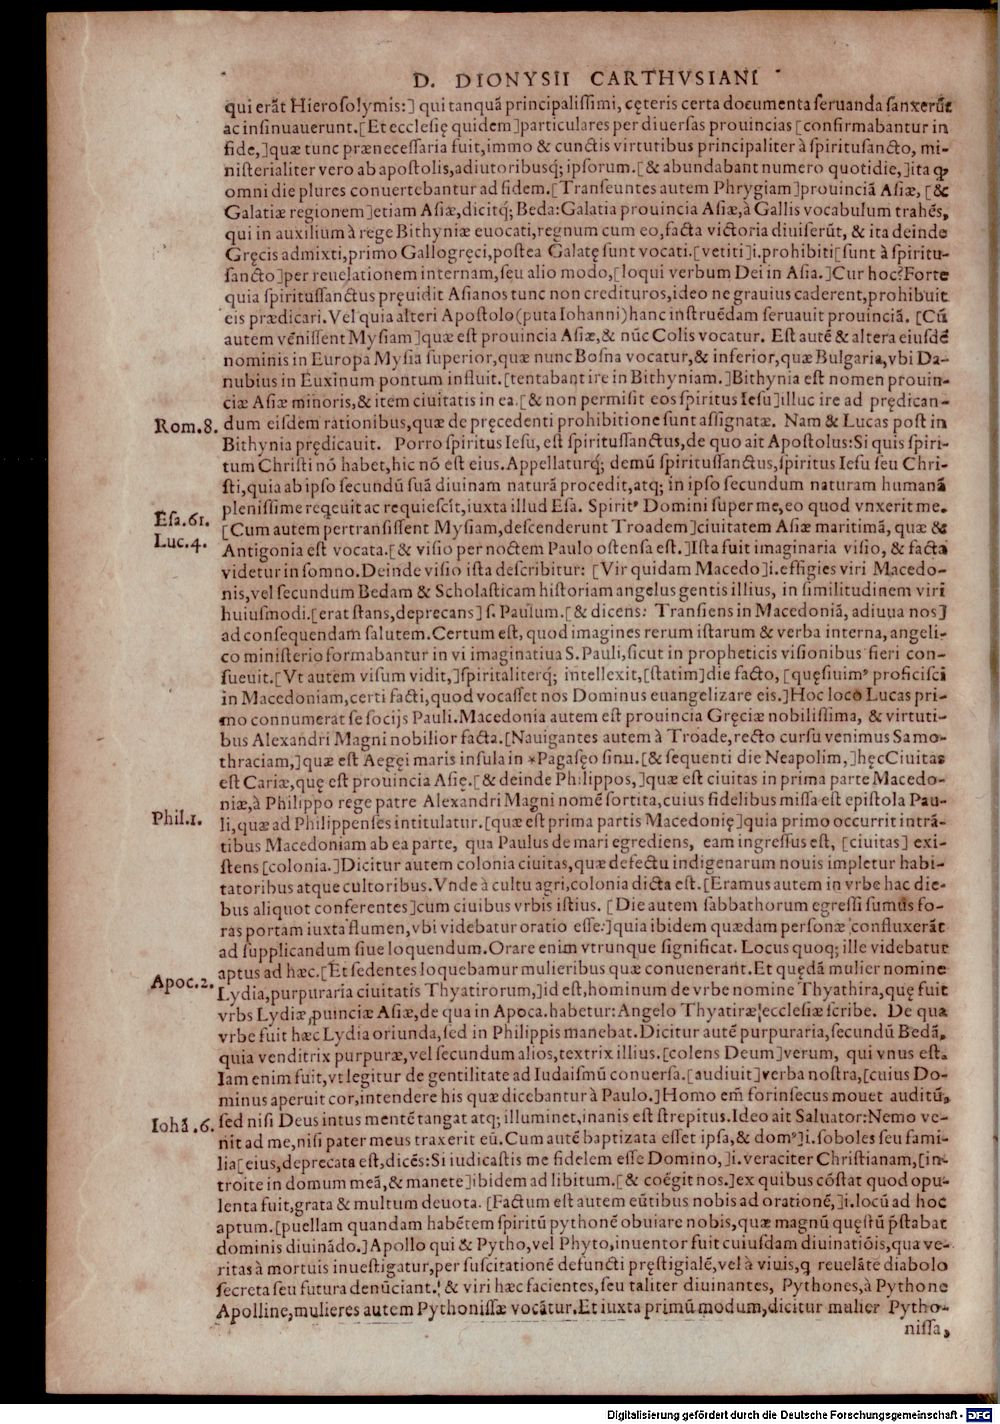 D. DIONYSII CARTHVSIANI
qui erāt Hierosolymis:] qui tanquā principalissimi, cęteris certa documenta seruanda sanxerūt
ac insinuauerunt.[Et ecclesię quidem]particulares per diuersas prouincias [confirmabantur in
fide,]quæ tunc prænecessaria fuit,immo & cunctis virtutibus principaliter à spiritusancto, mi-
nisterialiter vero ab apostolis,adiutoribusq́; ipsorum.[& abundabant numero quotidie,]ita ꝙ
omni die plures conuertebantur ad fidem.[Transeuntes autem Phrygiam]prouinciā Asiæ, [&
Galatiæ regionem]etiam Asiæ,dicitq́; Beda:Galatia prouincia Asiæ,à Gallis vocabulum trahēs,
qui in auxilium à rege Bithyniæ euocati,regnum cum eo,facta victoria diuiserūt, & ita deinde
Gręcis admixti,primo Gallogręci,postea Galatę sunt vocati.[vetiti]i.prohibiti[sunt à spiritu-
sancto]per reuelationem internam,seu alio modo,[loqui verbum Dei in Asia.]Cur hoc?Forte
quia spiritussanctus pręuidit Asianos tunc non credituros,ideo ne grauius caderent,prohibuit
eis prædicari.Vel quia alteri Apostolo(puta Iohanni)hanc instruēdam seruauit prouinciā. [Cū
autem venissent Mysiam]quæ est prouincia Asiæ,& nūc Colis vocatur. Est autē & altera eiusdē
nominis in Europa Mysia superior,quæ nunc Bosna vocatur,& inferior,quæ Bulgaria,vbi Da-
nubius in Euxinum pontum influit.[tentabant ire in Bithyniam.]Bithynia est nomen prouin-
ciæ Asiæ minoris,& item ciuitatis in ea.[& non permisit eos spiritus Iesu]illuc ire ad prędican-
Rom.8. dum eisdem rationibus,quæ de pręcedenti prohibitione sunt assignatæ. Nam & Lucas post in
Bithynia prędicauit. Porro spiritus Iesu, est spiritussanctus,de quo ait Apostolus:Si quis spiri-
tum Christi nō habet,hic nō est eius.Appellaturq́; demū spiritussanctus,spiritus Iesu seu Chri-
sti,quia ab ipso secundū suā diuinam naturā procedit,atq; in ipso secundum naturam humanā
Esa.61. plenissime reqeuit ac requiescit,iuxta illud Esa. Spirit⁹ Domini super me,eo quod vnxerit me.
Luc.4. [Cum autem pertransissent Mysiam,descenderunt Troadem]ciuitatem Asiæ maritimā, quæ &
Antigonia est vocata.[& visio per noctem Paulo ostensa est.]Ista fuit imaginaria visio, & facta
videtur in somno.Deinde visio ista describitur: [Vir quidam Macedo]i.effigies viri Macedo-
nis,vel secundum Bedam & Scholasticam historiam angelus gentis illius, in similitudinem viri
huiusmodi.[erat stans,deprecans] s. Paulum.[& dicens: Transiens in Macedoniā, adiuua nos]
ad consequendam salutem.Certum est, quod imagines rerum istarum & verba interna, angeli-
co ministerio formabantur in vi imaginatiua S. Pauli,sicut in propheticis visionibus fieri con-
sueuit.[Vt autem visum vidit,]spiritaliterq́; intellexit,[statim]die facto, [quęsiuim⁹ proficisci
in Macedoniam,certi facti,quod vocasset nos Dominus euangelizare eis.]Hoc loco Lucas pri-
mo connumerat se socijs Pauli.Macedonia autem est prouincia Gręciæ nobilissima, & virtuti-
bus Alexandri Magni nobilior facta.[Nauigantes autem à Troade,recto cursu venimus Samo-
thraciam,]quæ est Aegęi maris insula in *Pagasęo sinu.[& sequenti die Neapolim,]hęcCiuitas
est Cariæ,quę est prouincia Asię.[& deinde Philippos,]quæ est ciuitas in prima parte Macedo-
niæ,à Philippo rege patre Alexandri Magni nomē sortita,cuius fidelibus missa est epistola Pau-
Phil.1. li,quæ ad Philippenses intitulatur.[quæ est prima partis Macedonię]quia primo occurrit intrā-
tibus Macedoniam ab ea parte, qua Paulus de mari egrediens, eam ingressus est, [ciuitas] exi-
stens [colonia.]Dicitur autem colonia ciuitas,quæ defectu indigenarum nouis impletur habi-
tatoribus atque cultoribus.Vnde à cultu agri,colonia dicta est.[Eramus autem in vrbe hac die-
bus aliquot conferentes]cum ciuibus vrbis istius. [Die autem sabbathorum egressi sumus fo-
ras portam iuxta flumen,vbi videbatur oratio esse:]quia ibidem quædam personæ confluxerāt
ad supplicandum siue loquendum.Orare enim vtrunque significat. Locus quoq; ille videbatur
aptus ad hæc.[Et sedentes loquebamur mulieribus quæ conuenerant.Et quędā mulier nomine
Apoc.2. Lydia,purpuraria ciuitatis Thyatirorum,]id est,hominum de vrbe nomine Thyathira,quę fuit
vrbs Lydiæ,ꝓuinciæ Asiæ,de qua in Apoca.habetur:Angelo Thyatiræ ecclesiæ scribe. De qua
vrbe fuit hæc Lydia oriunda,sed in Philippis manebat.Dicitur autē purpuraria,secundū Bedā,
quia venditrix purpuræ,vel secundum alios,textrix illius.[colens Deum]verum, qui vnus est.
Iam enim fuit,vt legitur de gentilitate ad Iudaismū conuersa.[audiuit]verba nostra,[cuius Do-
minus aperuit cor,intendere his quæ dicebantur à Paulo.]Homo em̄ forinsecus mouet auditū,
Iohā.6. sed nisi Deus intus mentē tangat atq; illuminet,inanis est strepitus.Ideo ait Saluator:Nemo ve-
nit ad me,nisi pater meus traxerit eū.Cum autē baptizata esset ipsa,& dom⁹]i.soboles seu fami-
lia[eius,deprecata est,dicēs:Si iudicastis me fidelem esse Domino,]i.veraciter Christianam,[in-
troite in domum meā,& manete]ibidem ad libitum.[& coëgit nos.]ex quibus cōstat quod opu-
lenta fuit,grata & multum deuota. [Factum est autem eūtibus nobis ad orationē,]i.locū ad hoc
aptum.[puellam quandam habētem spiritū pythonē obuiare nobis,quæ magnū quęstū p̄stabat
dominis diuinādo.]Apollo qui & Pytho,vel Phyto,inuentor fuit cuiusdam diuinatiōis,qua ve-
ritas à mortuis inuestigatur,per suscitationē defuncti pręstigialē,vel à viuis,q reuelāte diabolo
secreta seu futura denūciant. & viri hæc facientes,seu taliter diuinantes, Pythones,à Pythone
Apolline,mulieres autem Pythonissæ vocātur.Et iuxta primū modum,dicitur mulier Pytho-
nissa,
Digitalisierung gefördert durch die Deutsche Forschungsgemeinschaft - DFG